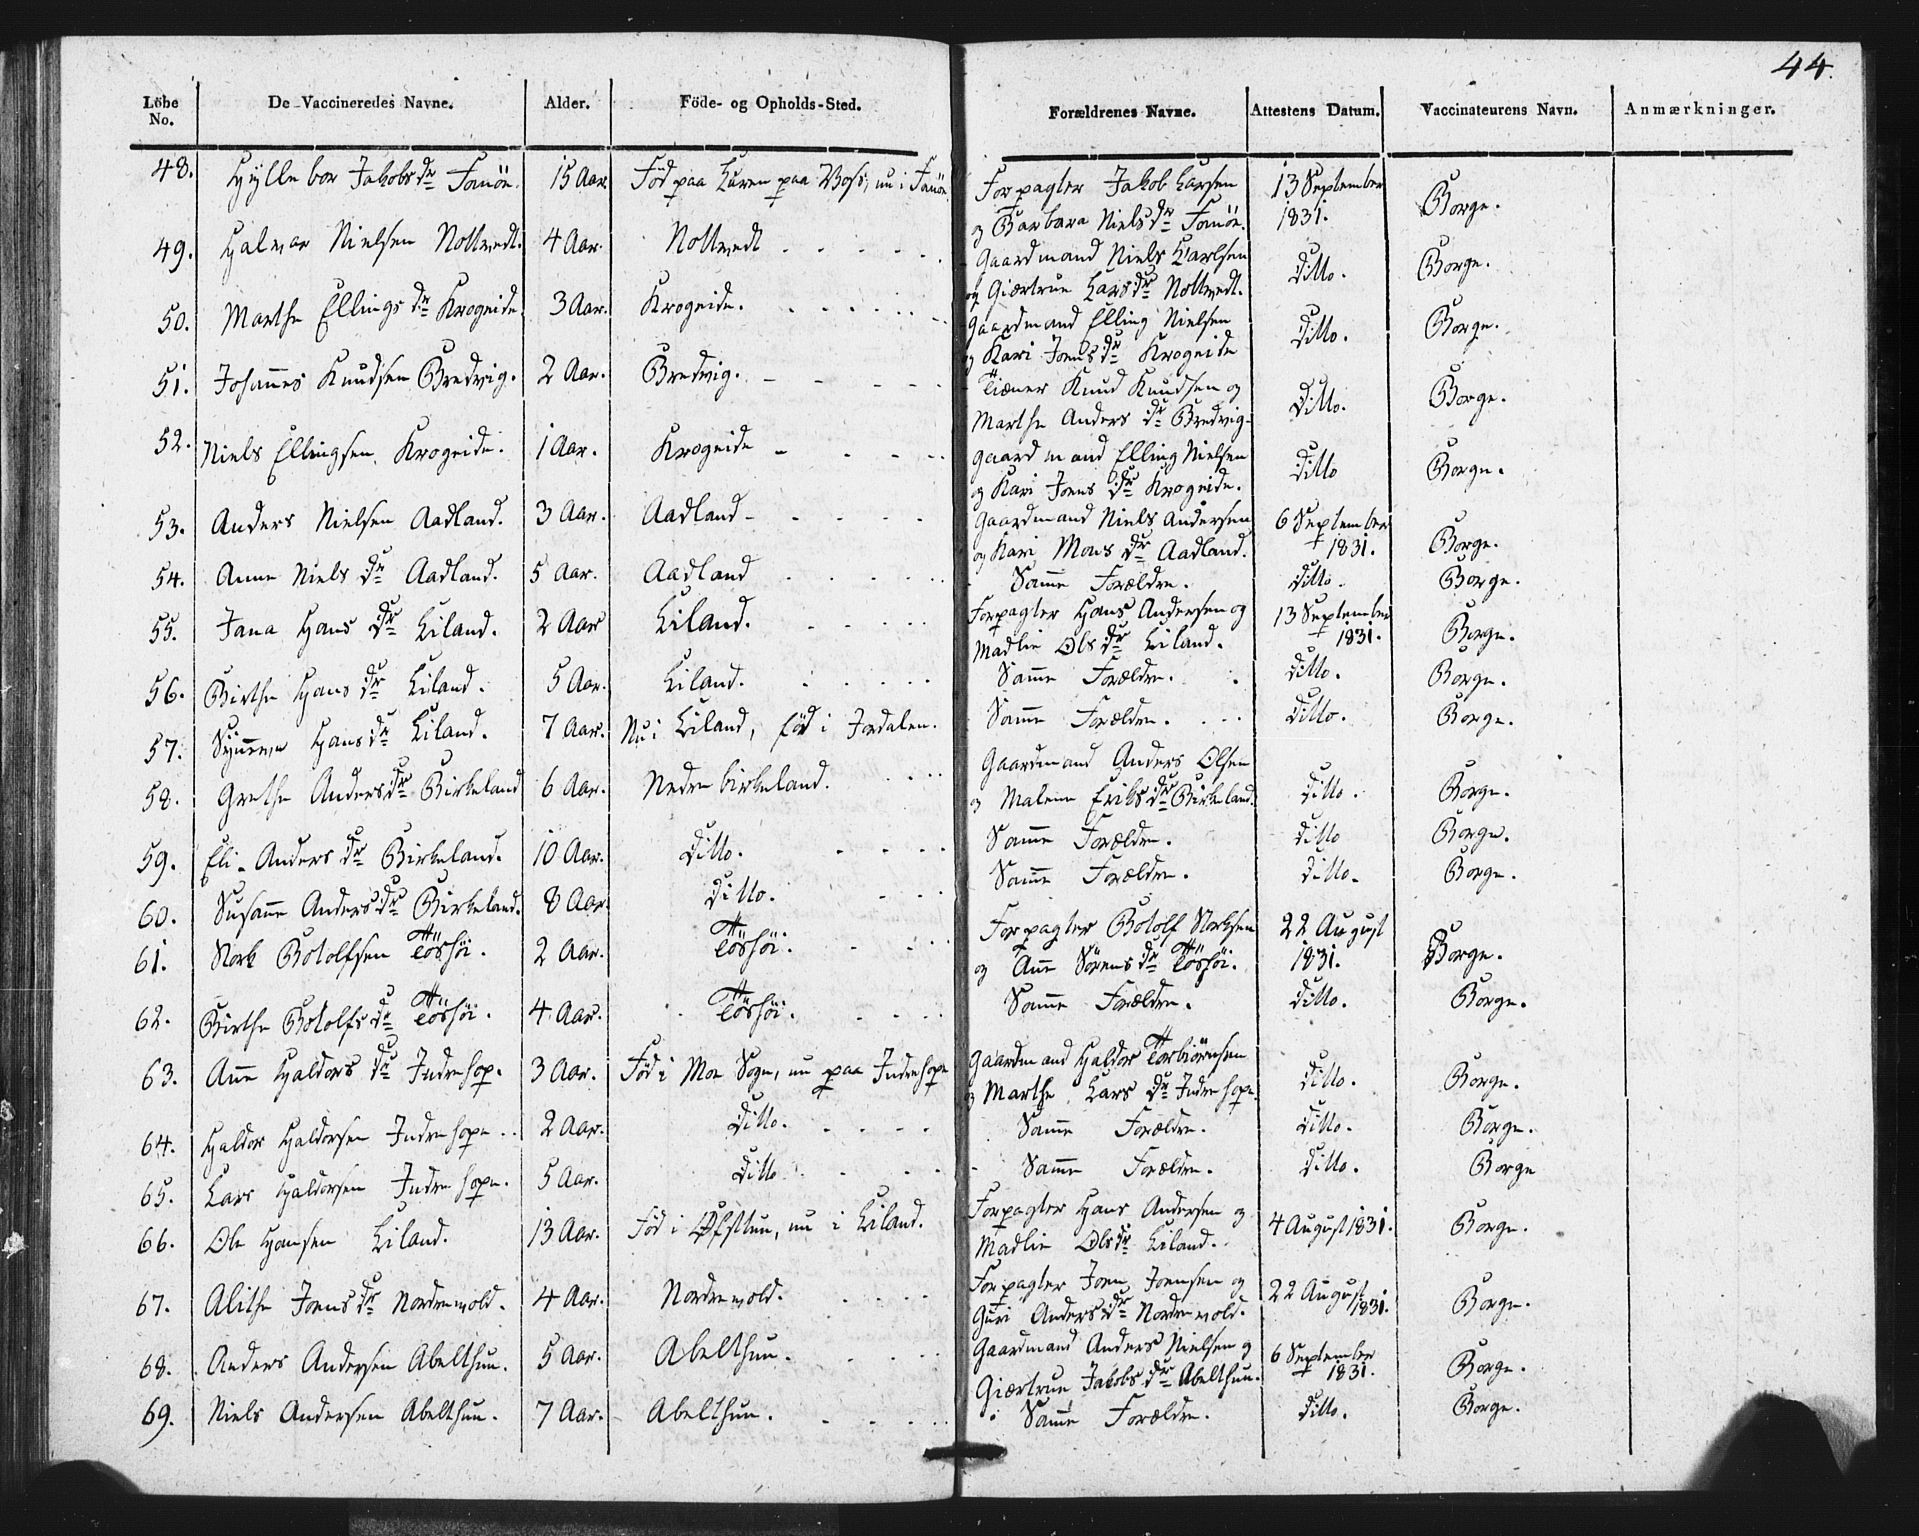 44.
Löbe No. De Vaccineredes Navne. Alder. Föde- og Opholds-Sted. Forældrenes Navne. Attestens Datum. Vaccinateurens Navn. Anmærkninger.
48. Hÿlleborg Jakobs dr Fanöe. 15 Aar. Föd paa Luren paa Voss, nu i Fanöe. Forpagter Jakob Larsen 13 September
og Barbara Niels dr Fanöe. 1831. Borge.
49. Halvor Nielsen Nottvedt. 4 Aar. Nottvedt Gaardmand Niels Karlsen
og Giertrue Lars dr Nottvedt. Ditto. Borge.
50. Marthe Ellings dr Krogeide 3 Aar. Krogeide. Gaardmand Elling Nielsen
og Kari Joens dr Krogeide Ditto. Borge.
51. Johannes Knudsen Bredvig. 2 Aar. Bredvig. Tiener Knud Knudsen og
Marthe Anders dr Bredvig. Ditto. Borge.
52. Niels Ellingsen Krogeide. 1 Aar. Krogeide Gaardmand Elling Nielsen
og Kari Joens dr Krogeide. Ditto Borge.
53. Anders Nielsen Aadland. 3 Aar. Aadland Gaardmand Niels Andersen 6 September
og Kari Mons dr Aadland. 1831. Borge.
54. Anne Niels dr Aadland. 5 Aar. Aadland Samme Forældre. Ditto. Borge.
55. Jana Hans dr Liland. 2 Aar Liland. Forpagter Hans Andersen og 13 September
Madlie Ols dr Liland. 1831. Borge.
56. Birthe Hans dr Liland. 5 Aar. Liland. Samme Forældre. Ditto. Borge.
57. Synneve Hans dr Liland. 7 Aar. Nu i Liland, föd i Jordalen. Samme Forældre. Ditto. Borge.
58. Grethe Anders dr Birkeland 6 Aar. Nedre birkeland. Gaardmand Anders Olsen
og Malene Eriks dr Birkeland. Ditto. Borge.
59. Eli Anders dr Birkeland. 10 Aar. Ditto. Samme Forældre. Ditto Borge.
60. Susanne Anders dr Birkeland. 8 Aar. Ditto. Samme Forældre. Ditto. Borge.
61. Nork Botolfsen Töshöi. 2 Aar. Töshöi. Forpagter Botolf Norksen 22 August
og Anne Sörens dr Töshöi. 1831. Borge.
62. Birthe Botolfs dr Töshöi. 4 Aar. Töshöi. Samme Forældre. Ditto. Borge.
63. Anne Haldors dr Indrehope. 3 Aar. Föd i Moe Sogn, nu paa Indrehope Gaardmand Haldor Torbiörnsen
og Marthe Lars dr Indrehope. Ditto. Borge.
64. Haldor Haldorsen Indrehope. 2 Aar. Ditto. Samme Forældre. Ditto. Borge.
65. Lars Haldorsen Indrehope. 5 Aar. Ditto Samme Forældre. Ditto. Borge
66. Ole Hansen Liland. 13 Aar. Föd i Öfsttun, nu i Liland. Forpagter Hans Andersen og
Madlie Ols dr Liland. 4 August 1831. Borge.
67. Alithe Joens dr Nordrevold. 4 Aar. Nordrevold. Forpagter Joen Joensen og 22 August
Guri Anders dr Nordrevold. 1831. Borge.
68. Anders Andersen Abelthun. 5 Aar. Abelthun. Gaardmand Anders Nielsen og 6 September
Giertrue Jakobs dr Abelthun. 1831. Borge.
69. Niels Andersen Abelthun. 7 Aar. Abelthun. Samme Forældre. Ditto. Borge.